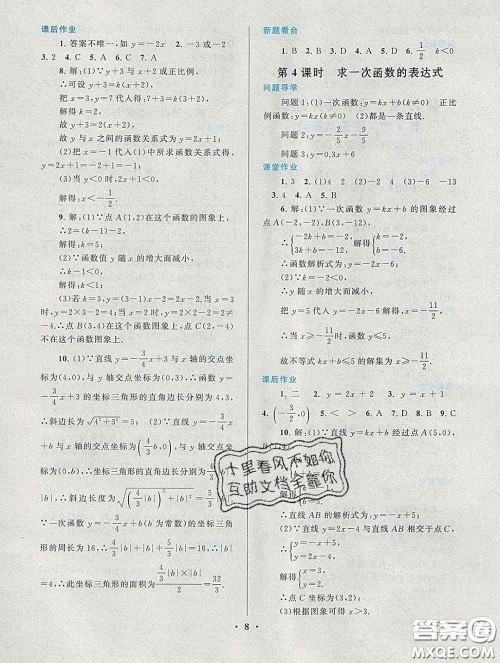 课后作业
1. 答案不唯一,如 y=-2x 2. -6或-2
3. 2 4. C 5. A 6. D 7. B
8. 解:(1)∵y+3 与 x+2 成正比例,
∴设 y+3=k(x+2)(k≠0).
把 x=3,y=7 代入得:7+3=k(3+2).
解得:k=2.
故 y+3=2(x+2)
故 y 与 x 之间的函数关系式为 y=2x+1.
(2)把 x=-1 代入(1)中所求函数关系式得,
y=2x+1=-2+1=-1.
(3)当 y<0 时,即 2x+1<0,
解得:x<-1/2.
9. 解:(1)∵点 A(1,2)在这个函数的图象上,
∴k-1=2.
解得:k=3.
(2)∵函数值 y 随 x 的增大而减小,
∴k-1<0.
解得:k<1.
(3)若 k=3,y=(3-1)x=2x=2x,当 x=3
时,y=2x=6≠4;当 x=2 时,y=2x=4≠
-4.∴点 B(3,4)在这个函数图象上,点 C(2,-4)
不在这个函数的图象上.
10. (1)∵直线 y=-3/4x+3 与 x 轴的交点坐
标为(4,0),与 y 轴交点坐标为(0,3),∴函数 y=
-3/4x+3 的坐标三角形的直角边长分别为 4,3.
∴斜边长为√(4²+3²)=5;
(2)∵直线 y=-3/4x+b 与 x 轴的交点坐标为
(4/3b,0),与 y 轴交点坐标为(0,b),∴坐标三角形的
斜边长度为√((4/3|b|)²+|b|²)=5/3|b|.
∵一次函数 y=-3/4x+b(b 为常数)的坐标三角形
的周长为 16,∴4/3|b|+|b|+5/3|b|=16,∴|b|
=4,∴此坐标三角形的面积为(4/3|b|×|b|)/2=32/3.
新题看台
1. B 2. C 3. A 4. A 5. D 6. 1/2 k<0
第 4 课时 求一次函数的表达式
问题导学
问题 1:(1)一次函数:y=kx+b(k≠0) 正比
例函数 y=kx(k≠0) (2)都是一条直线.
问题 2:y=-2/5x-9/5
问题 3:y=0.3x+6
课堂作业
1. 3 2. (1)4 (2)-2 (3)4 (4)-6 -13
3. A 4. D 5. A
6. 解:(1)∵一次函数 y=kx+b 的图象经过
点(-2,-2)、
∴{-2k+b=-2,
解得:{k=-2,b=-6.
∴函数解析式为:y=-2x-6;
∵k=-2<0.
∴y 随 x 的增大而减小.
把 y=5 代入 y=-2x-6 解得,x=-11/2.
∴当 x≥-11/2 时,y≤5.
故不等式 kx+b≤5 的解集为 x≥-11/2.
课后作业
1. 二 2. y=2x+2 3. y=2x
4. (-3/2,0) 5. < > 6. B 7. D 8. B 9. C
10. 解:(1)∵直线 y=kx+b 经过点 A(5,0)
十里春风不如你
互助文档全靠你
∴直线 AB 的解析式为:y=-x+5.
(2)∵直线 y=2x-4 与直线 AB 相交于点 C.
解得:{x=3,y=2.
∴点 C(3,2);
(3)根据图象可得 x>3.
· 8 ·
答案圈
MXQE.COM